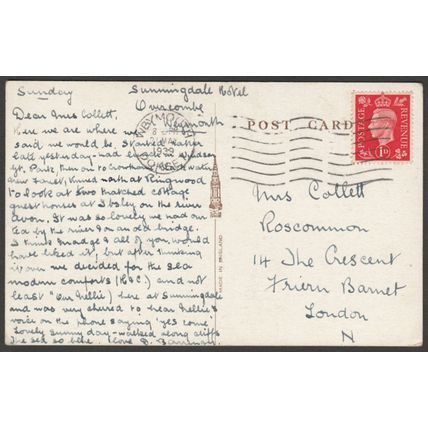 Sunday Sunningdale Hotel
Overcombe
Weymouth
Dear Mrs Collett,
Here we are where we
said we would be. Started rather
late yesterday - had in Windsor
Gt. Park, then on to
New Forest, turned north at Ringwood
to look at two thatched cottage
guest houses at Ibsley on the river
Avon. It was so lovely we had our
tea by the river & on an old bridge.
I think Madge & all of you would
have liked it, but after thinking
it over we decided for the sea
modern comforts (H&C) and not
least "Our Nellie") here at Sunningdale
and was very cheered to hear Nellie's
voice on the phone saying 'yes come'
Lovely sunny day - walked along cliffs
The sea so blue. Love D.
WEYMOUTH
1939
DORSET
POST CARD
POSTAGE
REVENUE
1D
MADE IN ENGLAND
Mrs Collett
Roscommon
14 The Crescent
Friern Barnet
London
N